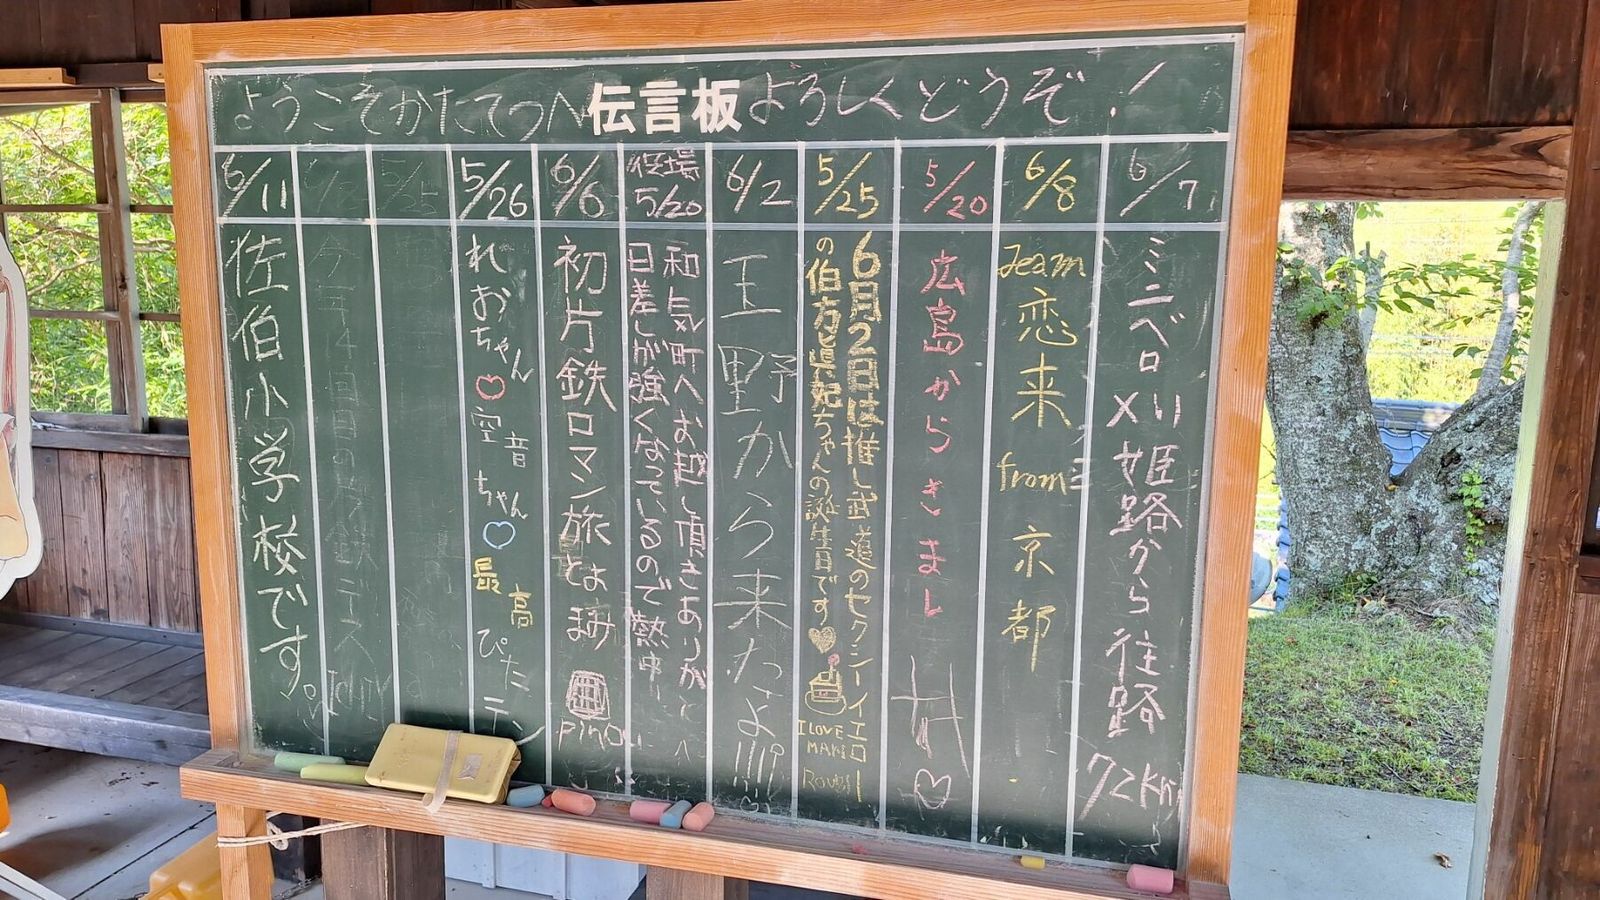 ようこそかたてつへ 伝言板 よろしくどうぞ!
6/7
ミニベロ
メリ 姫路から 往路
72km
6/8
Team 恋来 from 京都
5/20
広島からきました
5/25
6月2日は推し武道のセクシーイエロー
の伯方眞妃ちゃんの誕生日です♡
I LOVE
MAKI
6/2
玉野から来たよ!!!
役場
5/20
和気町へお越し頂きありがと
日差しが強くなっているので熱中
6/6
初片鉄ロマン旅
pino
5/26
れおちゃん♡空音ちゃん♡最高
ぴた
5/25
今年4回目の片鉄デース
6/11
佐伯小学校です。